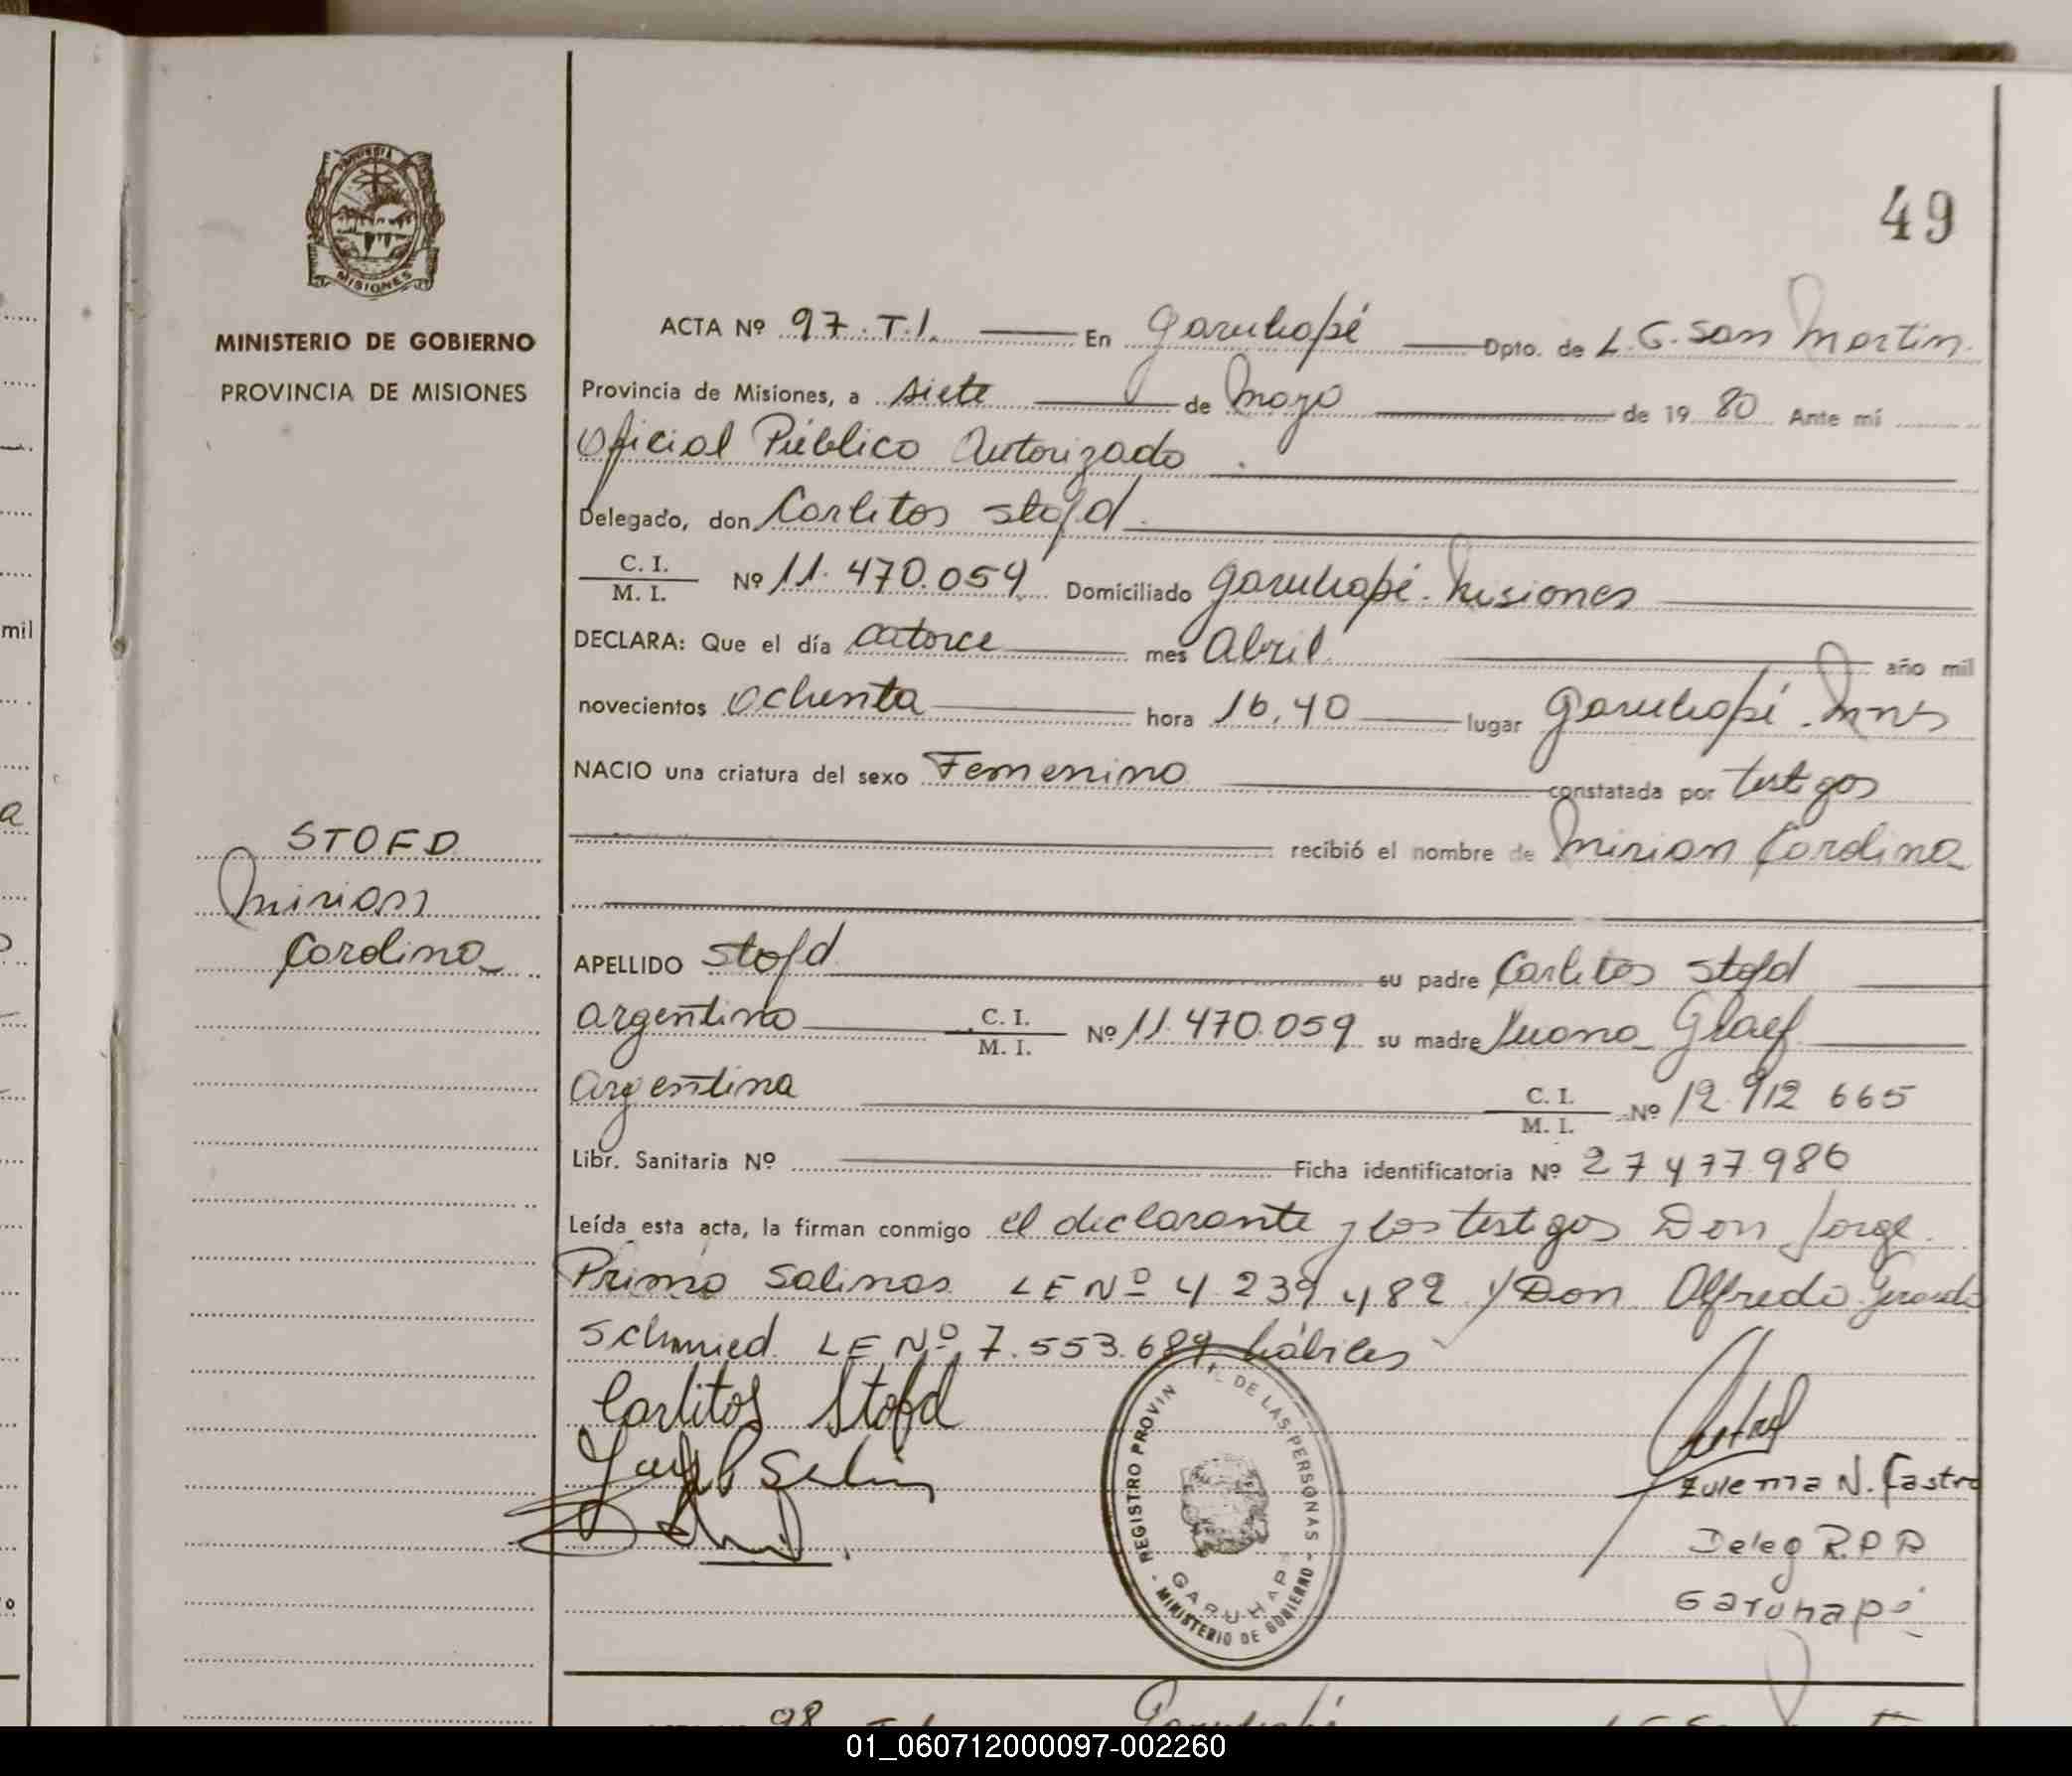 49
MISIONES
MINISTERIO DE GOBIERNO
PROVINCIA DE MISIONES
STOFD
Mirian
Cardina
ACTA Nº 97. T.I. En Garuhapé Dpto. de L. G. San Martin
Provincia de Misiones, a siete de Mayo de 1980 Ante mí
Oficial Público Autorizado
Delegado, don Carlitos Stofd
C. I. / M. I. Nº 11.470.059 Domiciliado Garuhapé. Misiones
DECLARA: Que el día catorce mes Abril año mil
novecientos ochenta hora 16,40 lugar Garuhapé. Mnes
NACIO una criatura del sexo Femenino constatada por testigos
recibió el nombre de Mirian Cardina
APELLIDO Stofd su padre Carlitos Stofd
argentino C. I. / M. I. Nº 11.470.059 su madre Glaef
argentina C. I. / M. I. Nº 12.912 665
Libr. Sanitaria Nº Ficha identificatoria Nº 27477986
Leída esta acta, la firman conmigo el declarante y los testigos Don Jorge
Primo Salinas LE Nº 4 239 482 y Don Alfredo Gerardo
Schmied LE Nº 7.553.689 hábiles
Carlitos Stofd
REGISTRO PROVIN L DE LAS PERSONAS - MINISTERIO DE GOBIERNO -
GARUHAP
Zulema N. Castro
Deleg R.P.P
Garuhapé
98
Garuhapé
mil
01_060712000097-002260